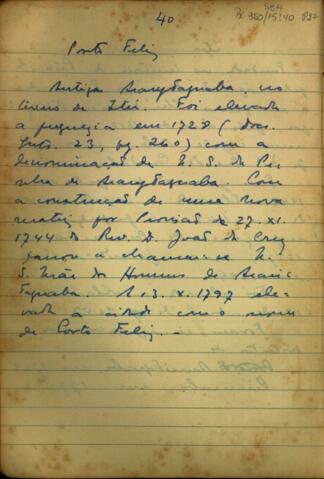 40
SBH
Pi 350/15:40 P27
Porto Feliz
Antiga Araritaguaba, no
termo de Itú. Foi elevada
a freguezia em 1728 (Doc.
Ints. 23, pg. 260) com a
denominação de N. S. da Pe-
nha de Araritaguaba. Com
a construção de uma nova
matriz por Provisão de 27.XI.
1744 do Rev. D. João da Cruz
passou a chamar-se N.
S. Mãe dos Homens de Arari-
taguaba. A 13.X.1797 ele-
vada a cidade com o nome
de Porto Feliz. -